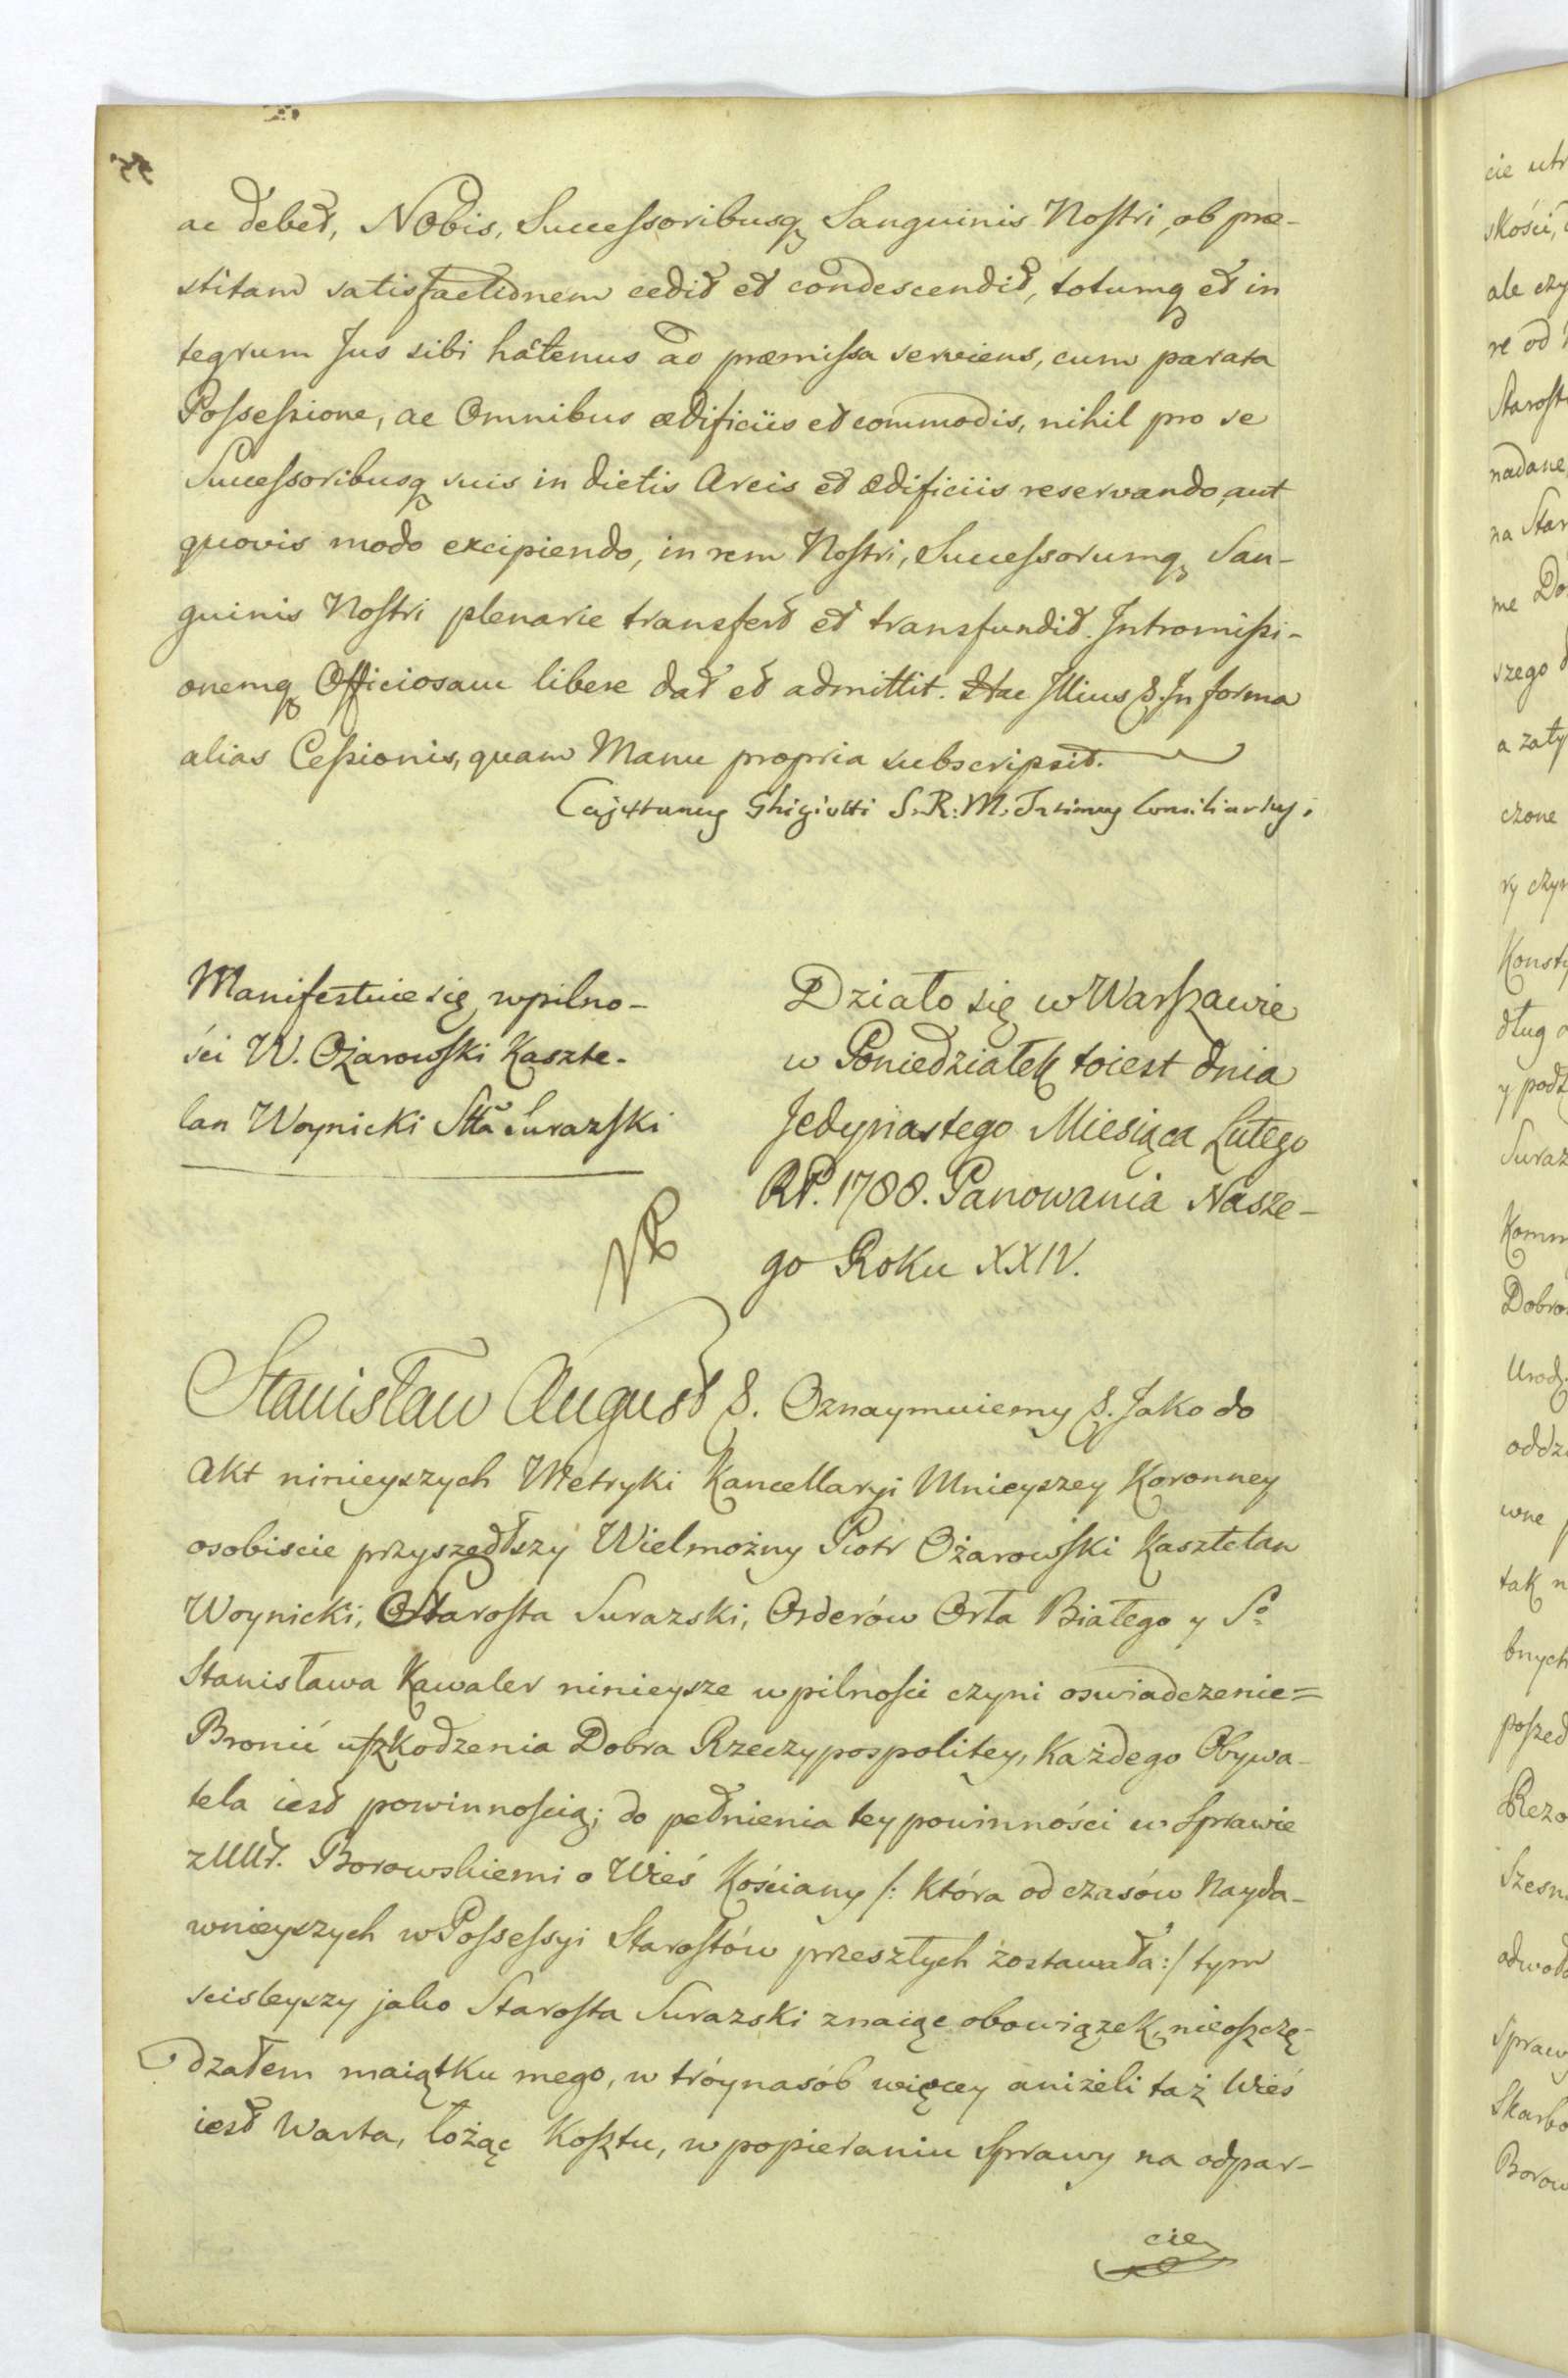 ac debet, Nobis, Successoribusq Sanguinis Nostri, ob præ-
stitam satisfactionem cedit et condescendit, totumq et in
tegrum Jus sibi hactenus ad præmissa serviens, cum parata
Possessione, ac Omnibus ædificiis et commodis, nihil pro se
Successoribusq suis in dictis Areis et Ædificiis reservando, aut
quovis modo excipiendo, in rem Nostri, Successorumq San-
guinis Nostri plenarie transfert et transfundit. Intromissi-
onemq Officiosam libere dat et admittit. Hac Illius &. In forma
alias Cessionis, quam Manu propria subscripsit.
Cajetanus Ghigiotti S. R: M. Intimus Consiliarius.
Manifestuie się wpilno-
ści W. Ożarowski Kaszte-
lan Woynicki Stta Surazski
Działo się w Warszawie
w Poniedziałek toiest dnia
Jedynastego Miesiąca Lutego
RP. 1788. Panowania Nasze-
go Roku XXIV.
Stanisław August &. Oznaymuiemy &. Jako do
Akt ninieyszych Metryki Kancellaryi Mnieyszey Koronney
osobiscie przyszedłszy Wielmożny Piotr Ożarowski Kasztelan
Woynicki, Starosta Surazski, Orderów Orła Białego y So
Stanisława Kawaler ninieysze wpilności czyni oswiadczenie=
Bronić uszkodzenia Dobra Rzeczypospolitey, Każdego Obywa-
tela iest powinnością; do pełnienia tey powinności w Sprawie
z UUr. Borowskiemi o Wieś Kościany /: która od czasów Nayda-
wnieyszych w Possessyi Starostów przeszłych zostawała :/ tym
scisleyszy jako Starosta Surazski znaiąc obowiązek, nieoszczę-
dzałem maiątku mego, w tróynasób więcey aniżeli taż Wieś
iest Warta, łożąc Kosztu, w popieraniu Sprawy na odpar-
cie